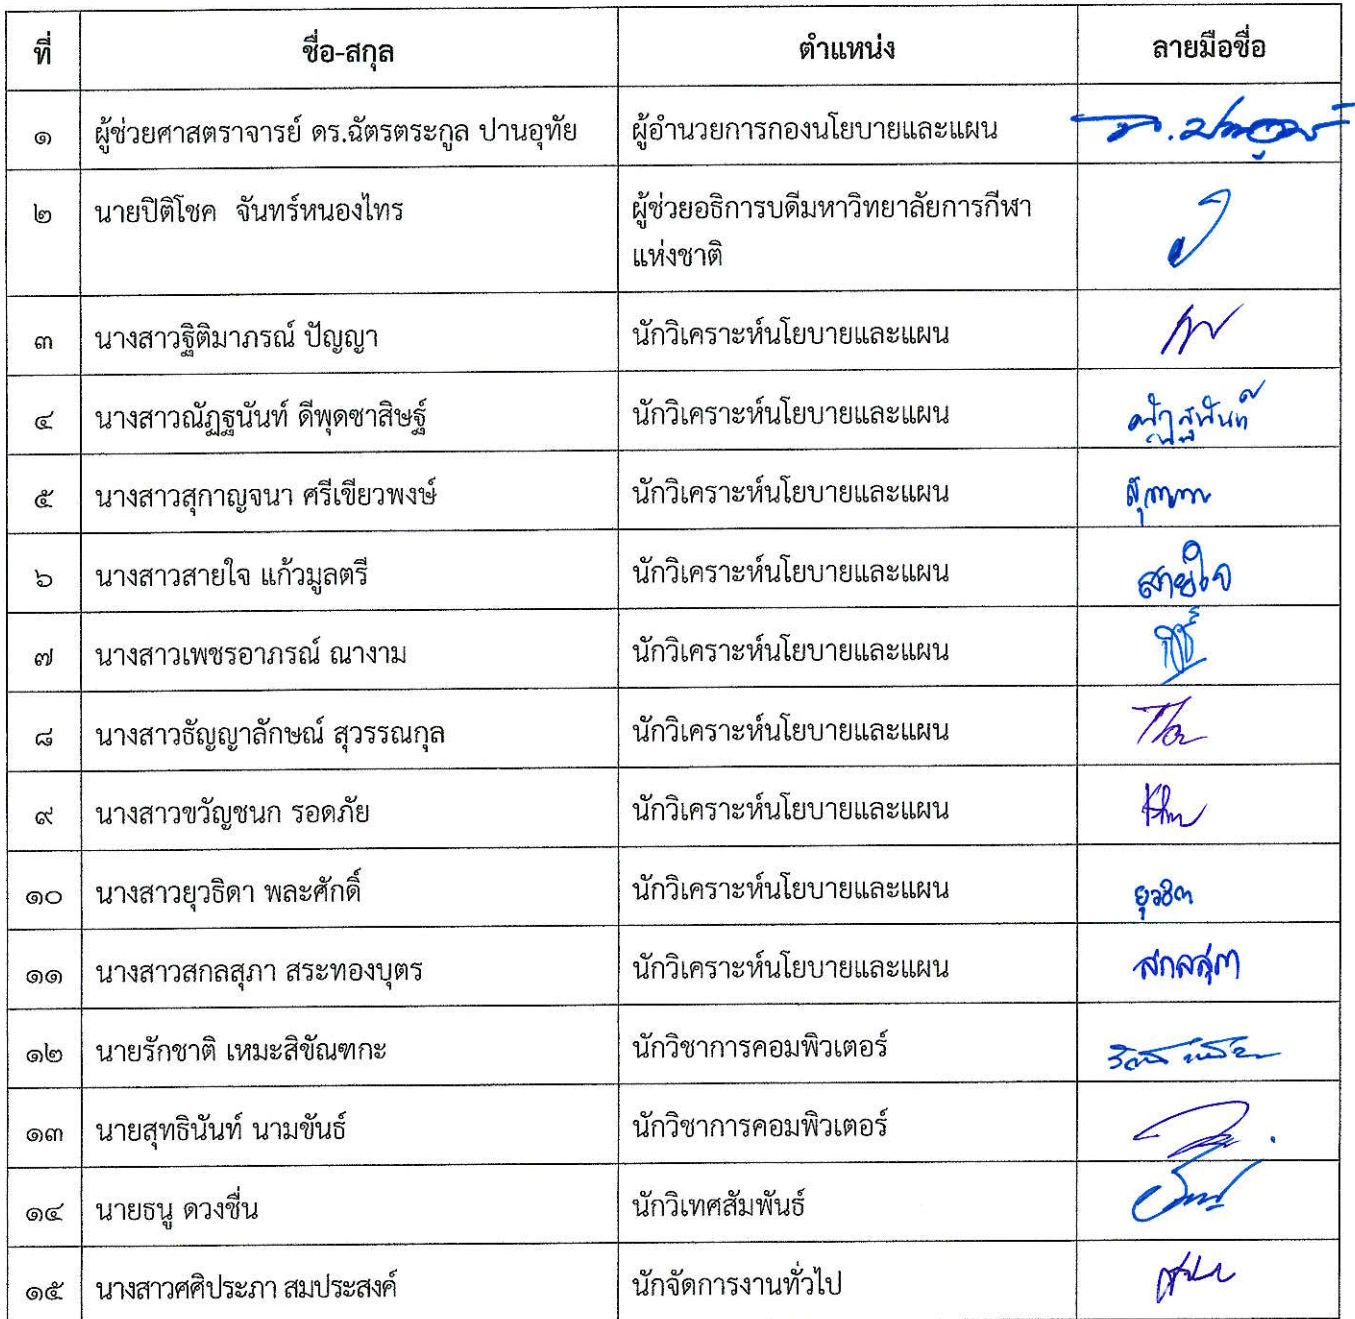 ที่ ชื่อ-สกุล ตำแหน่ง ลายมือชื่อ
๑ ผู้ช่วยศาสตราจารย์ ดร.ฉัตรตระกูล ปานอุทัย ผู้อำนวยการกองนโยบายและแผน
๒ นายปิติโชค จันทร์หนองไทร ผู้ช่วยอธิการบดีมหาวิทยาลัยการกีฬา
แห่งชาติ
๓ นางสาวฐิติมาภรณ์ ปัญญา นักวิเคราะห์นโยบายและแผน
๔ นางสาวณัฏฐนันท์ ดีพุดซาสิษฐ์ นักวิเคราะห์นโยบายและแผน
๕ นางสาวสุกาญจนา ศรีเขียวพงษ์ นักวิเคราะห์นโยบายและแผน
๖ นางสาวสายใจ แก้วมูลตรี นักวิเคราะห์นโยบายและแผน สายใจ
๗ นางสาวเพชรอาภรณ์ ณางาม นักวิเคราะห์นโยบายและแผน
๘ นางสาวธัญญาลักษณ์ สุวรรณกุล นักวิเคราะห์นโยบายและแผน
๙ นางสาวขวัญชนก รอดภัย นักวิเคราะห์นโยบายและแผน
๑๐ นางสาวยุวธิดา พละศักดิ์ นักวิเคราะห์นโยบายและแผน ยุวธิดา
๑๑ นางสาวสกลสุภา สระทองบุตร นักวิเคราะห์นโยบายและแผน สกลสุภา
๑๒ นายรักชาติ เหมะสิขัณฑกะ นักวิชาการคอมพิวเตอร์
๑๓ นายสุทธินันท์ นามขันธ์ นักวิชาการคอมพิวเตอร์
๑๔ นายธนู ดวงชื่น นักวิเทศสัมพันธ์
๑๕ นางสาวศศิประภา สมประสงค์ นักจัดการงานทั่วไป